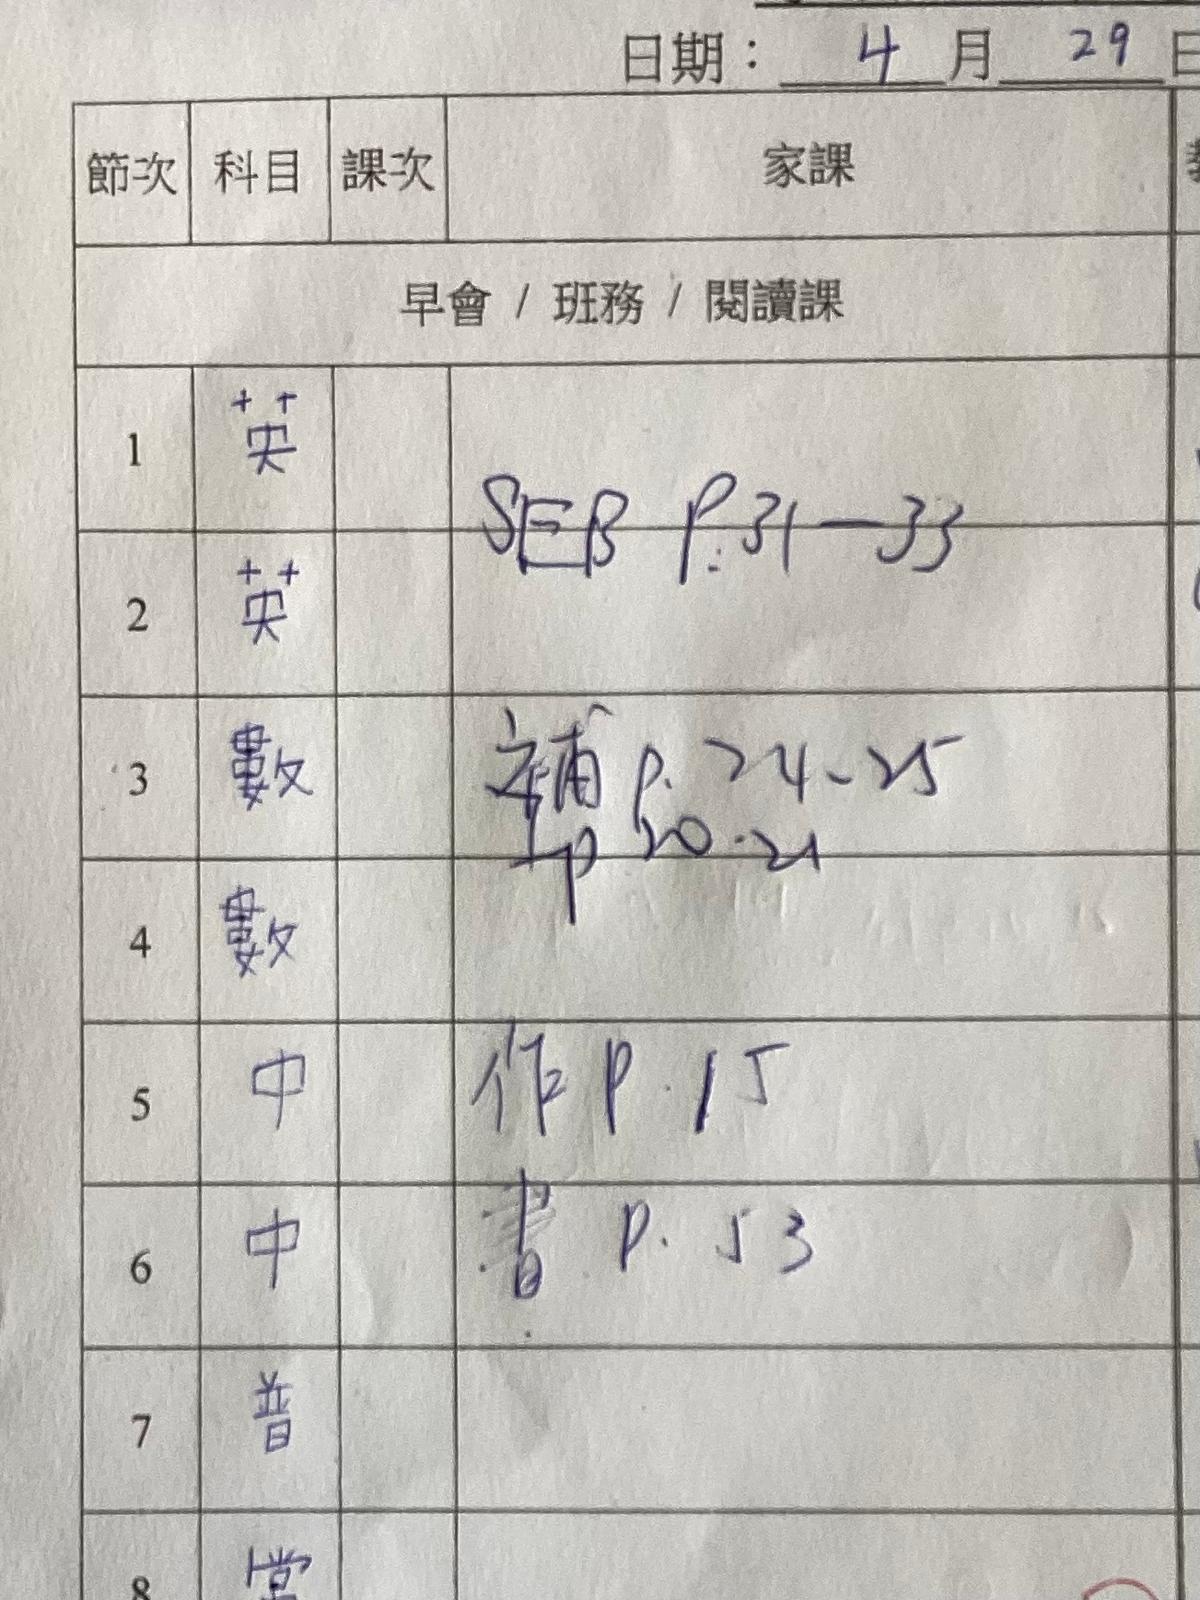 日期： 4 月 29 日
節次 科目 課次 家課
早會 / 班務 / 閱讀課
1 英
SEB P.31-33
2 英
3 數 補 P. 24-25
P 20-21
4 數
5 中 作 P. 15
6 中 書 P. 53
7 普
8 堂